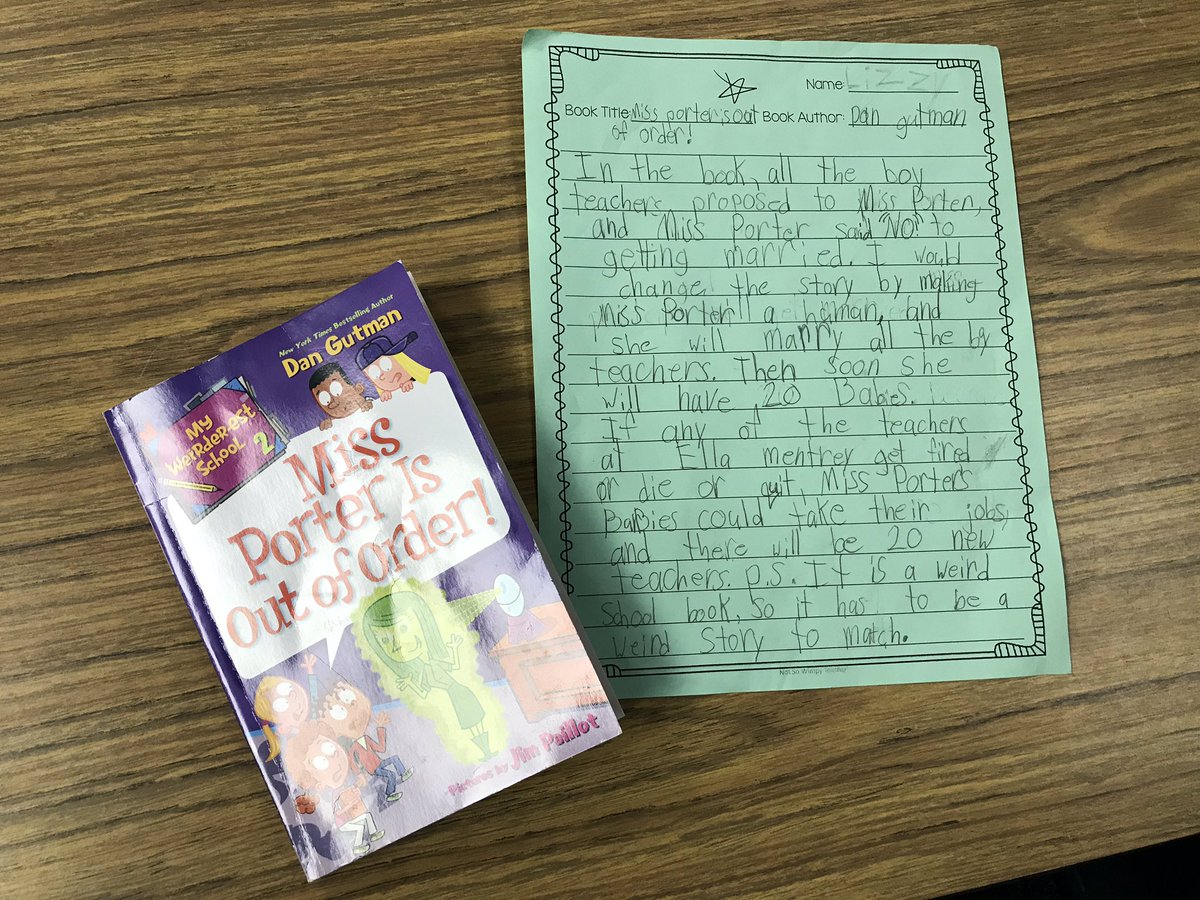 New York Times Bestselling Author
Dan Gutman
My
Weirder-est
School 2
Miss
Porter Is
Out of Order!
Pictures by Jim Paillot
Name: Lizzy
Book Title: Miss porter is out Book Author: Dan gutman
of order!
In the book, all the boy
teachers proposed to Miss Porter,
and Miss Porter said "NO" to
getting married. I would
change the story by making
Miss Porter a human, and
she will marry all the boy
teachers. Then soon she
will have 20 Babies.
If any of the teachers
at Ella mentrey get fired
or die or quit, Miss Porters
Babies could take their jobs,
and there will be 20 new
teachers. P.S. It is a weird
School book, so it has to be a
weird story to match.
Not So Wimpy Teacher